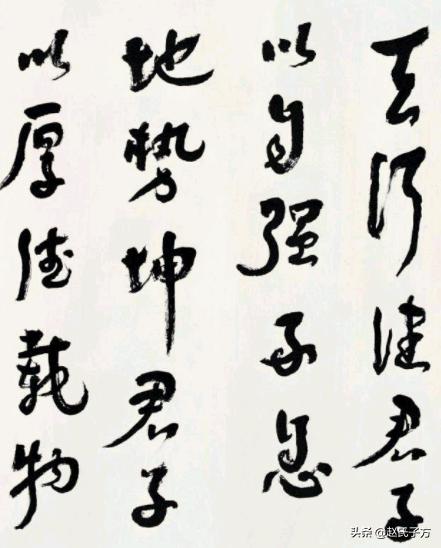 天行健君子
以自强不息
地势坤君子
以厚德載物
头条 @赵氏子方